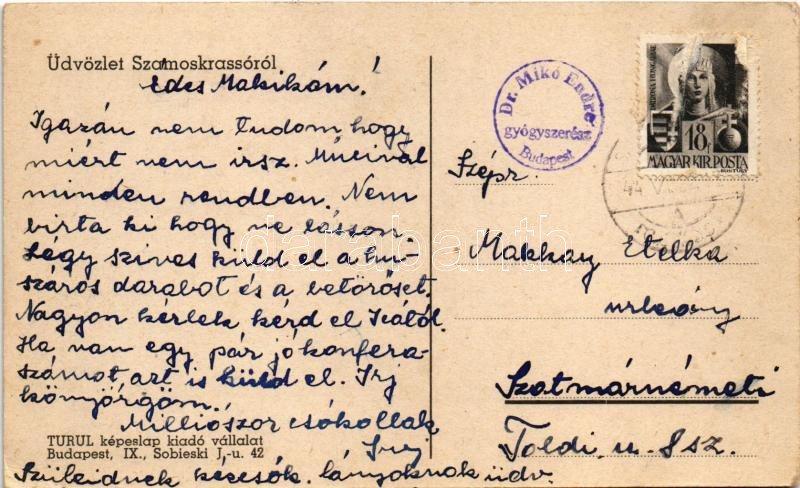 Üdvözlet Szamoskrassóról
Édes Makikám!
Igazán nem tudom hogy
miért nem irsz. Mucival
minden rendben. Nem
birta ki hogy ne lásson.
Légy szives küld el a hu-
száros darabot és a betörőset.
Nagyon kérlek kérd el Icától.
Ha van egy pár jó konfera-
számot azt is küld el. Irj
könyörgöm.
Milliószor csókollak
TURUL képeslap kiadó vállalat
Budapest, IX., Sobieski J.-u. 42
Szüleidnek kézcsók. lányoknak üdv.
Dr. Mikó Endre
gyógyszerész
Budapest
18f
MAGYAR KIR. POSTA
44 V
Szépr.
Makkay Etelka
urleány
Szatmárnémeti
Toldi u. 8 sz.
darabanth